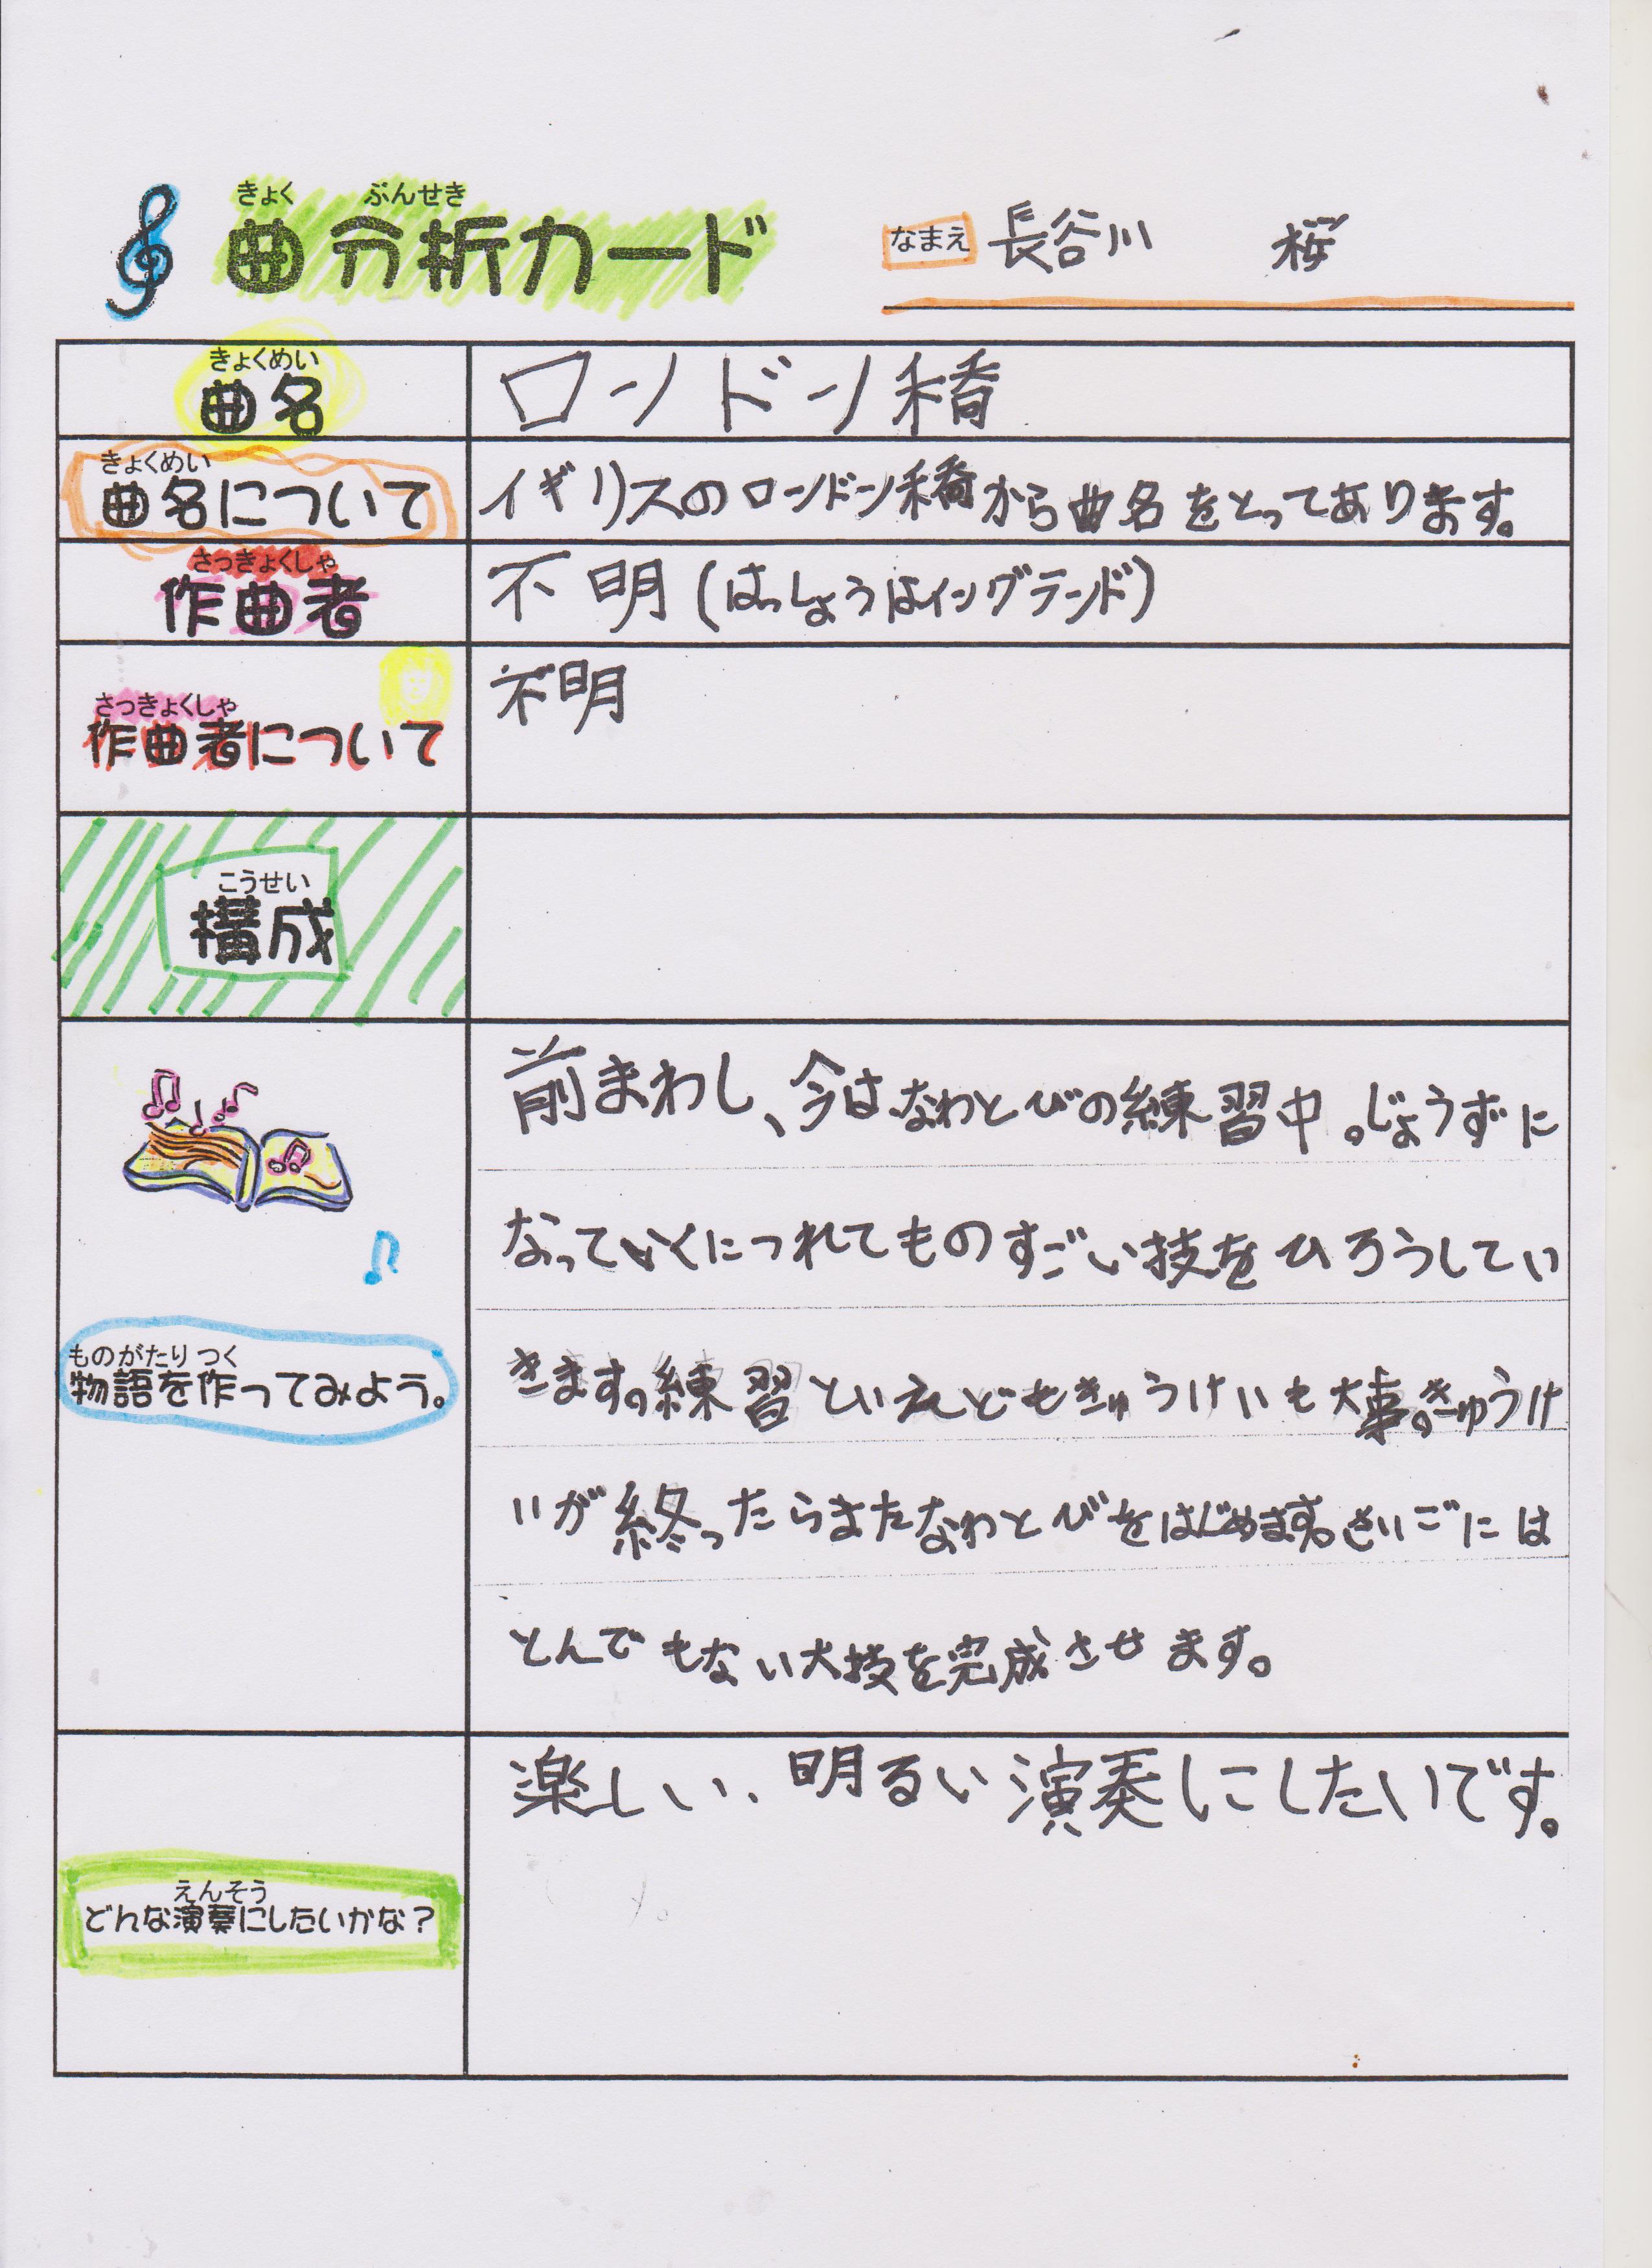 きょく ぶんせき
曲分析カード
なまえ 長谷川 桜
きょくめい
曲名
ロンドン橋
きょくめい
曲名について
イギリスのロンドン橋から曲名をとってあります。
さっきょくしゃ
作曲者
不明(はっしょうはイングランド)
さっきょくしゃ
作曲者について
不明
こうせい
構成
ものがたり つく
物語を作ってみよう。
前まわし、今はなわとびの練習中。じょうずに
なっていくにつれてものすごい技をひろうしてい
きます。練習といえどもきゅうけいも大事。きゅうけ
いが終ったらまたなわとびをはじめます。さいごには
とんでもない大技を完成させます。
えんそう
どんな演奏にしたいかな?
楽しい、明るい演奏にしたいです。